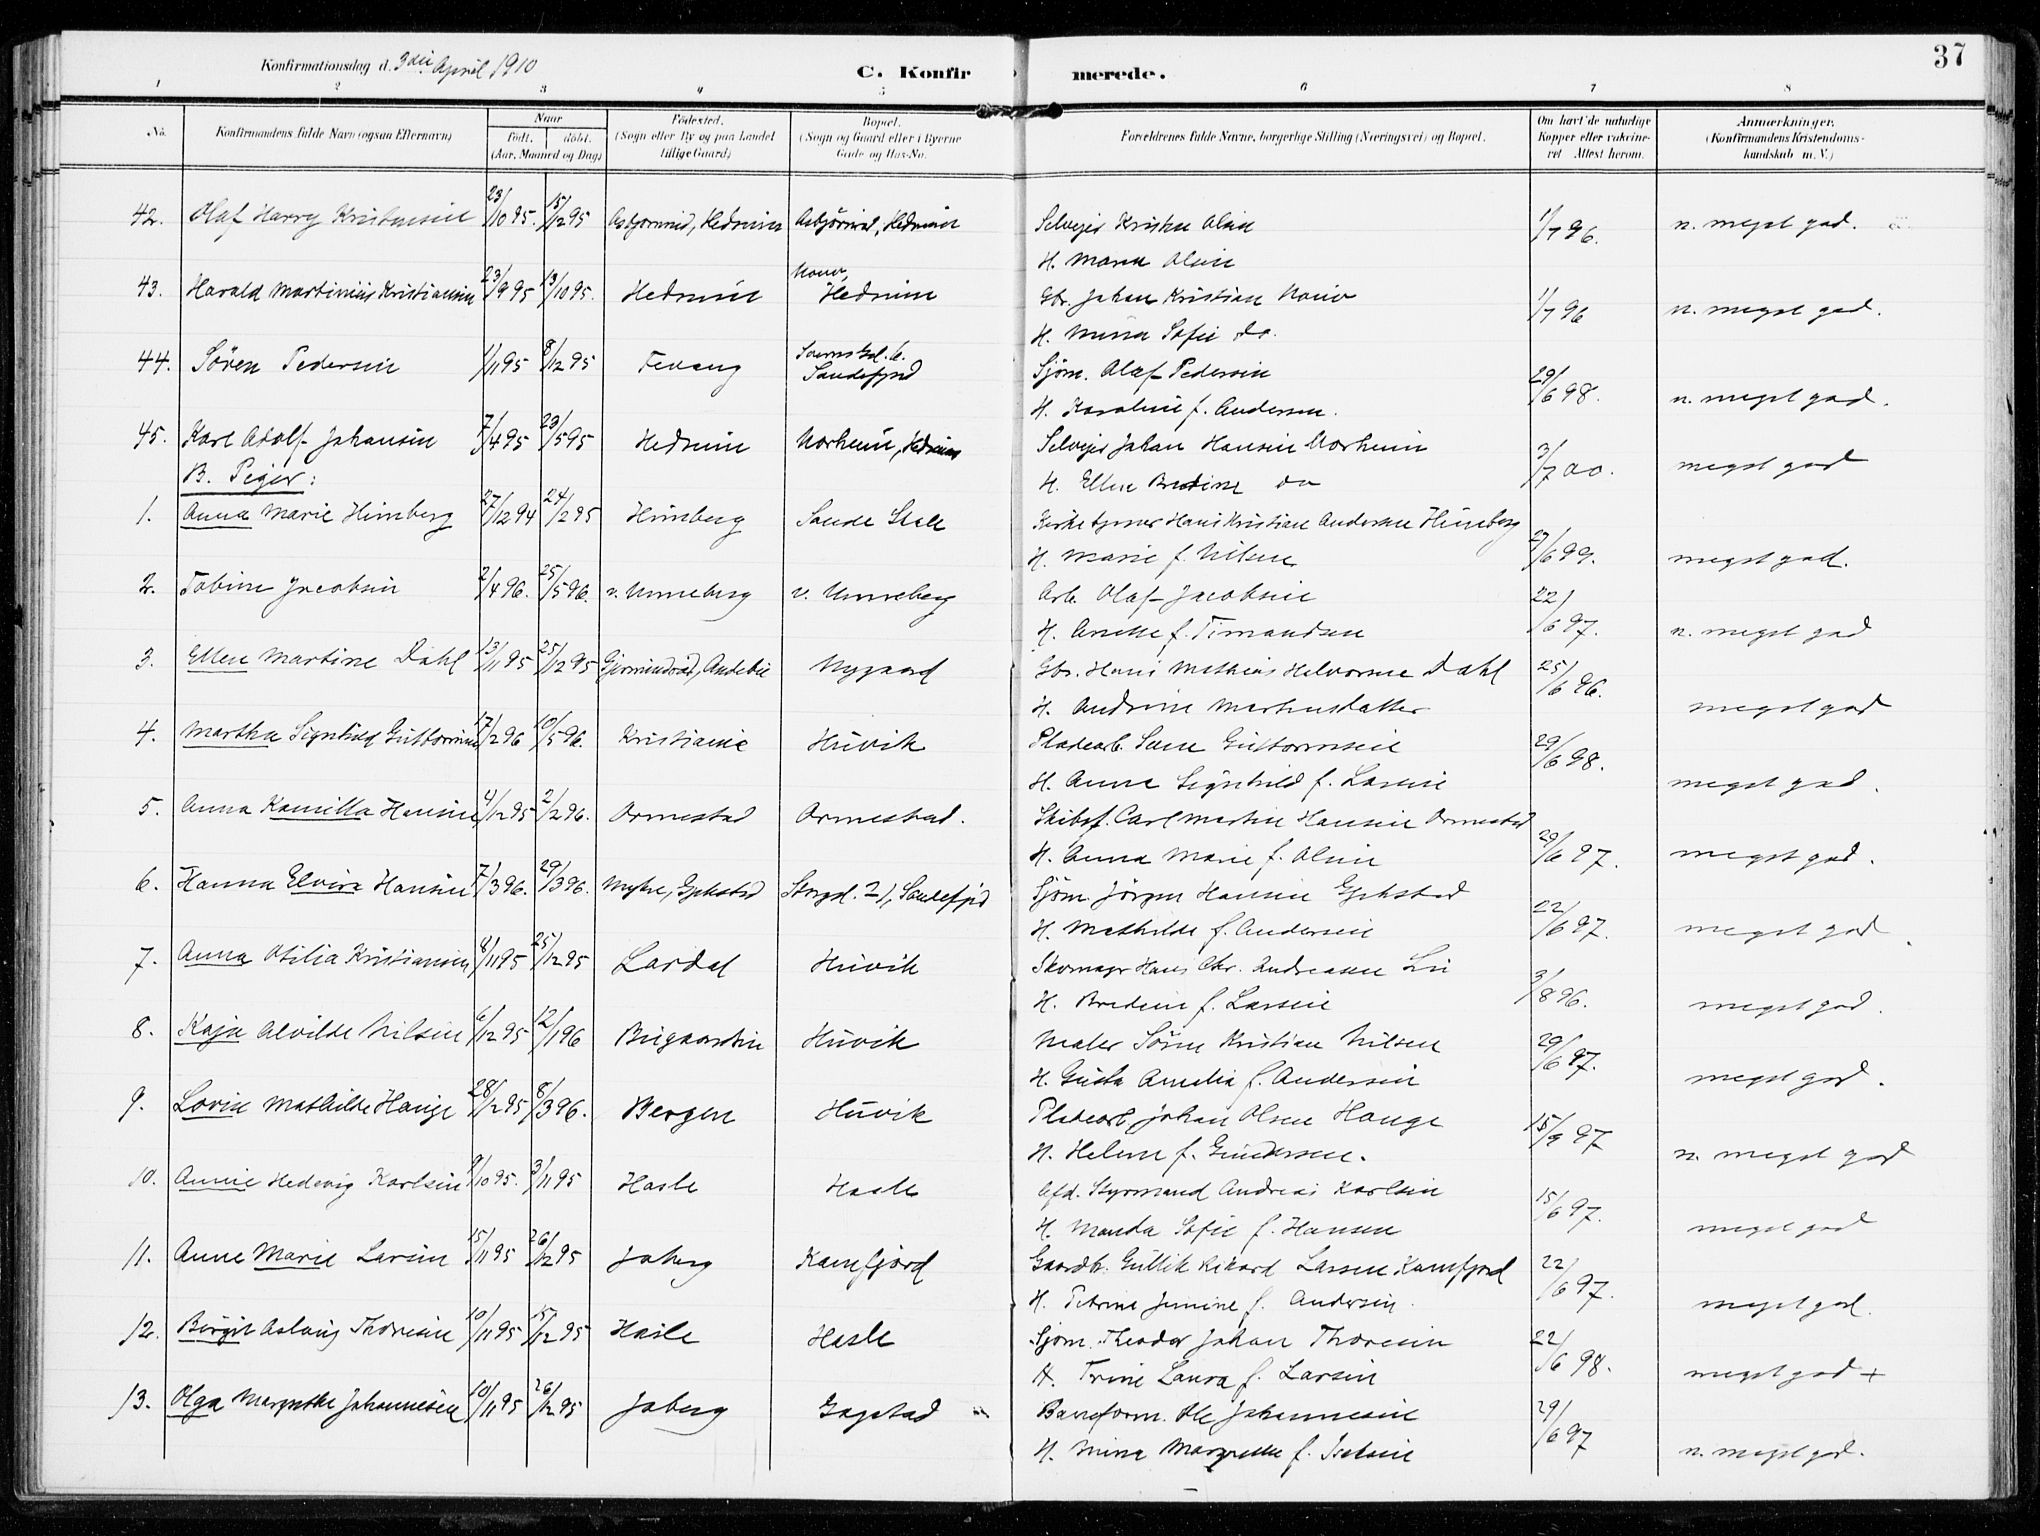 Konfirmationsdag d. 3die April 1910
C. Konfirmerede.
37
1 2 3 4 5 6 7 8
No. Konfirmandens fulde Navn (ogsaa Efternavn) Naar født. døbt. (Aar, Maaned og Dag) Fødested. (Sogn eller By og paa Landet tillige Gaard) Bopæl. (Sogn og Gaard eller i Byerne Gade og Hus-No. Forældrenes fulde Navne, borgerlige Stilling (Næringsvei) og Bopæl. Om havt de naturlige Kopper eller vakcineret. Attest herom. Anmærkninger. (Konfirmandens Kristendomskundskab m. V.)
42. Olaf Harry Kristensen 23/10 95. 15/12 95 Asbjørnrød, Hedrum Asbjørnrød, Hedrum Selvejer Kristen Olsen 1/7 96. n. meget god.
H. Maren Olsen
43. Harald Martinius Kristiansen 23/9 95 13/10 95. Hedrum Hedrum Gbr. Johan Kristian 1/7 96 n. meget god.
H. Mina Sofie do.
44. Søren Pedersen 1/11 95 8/12 95 Fevang Sandefjord Sjøm. Olaf Pedersen 29/6 98. n. meget god.
H. Karoline f. Andersen.
45. Karl Adolf Johansen 7/4 95 23/5 95 Hedrum Norheim, Hedrum Selvejer Johan Hansen Norheim 3/7 00. meget god
H. Ellen Bredine do
B. Piger:
1. Anna Marie Himberg 27/12 94 24/2 95 Himberg Sande Skole Kirketjener Hans Kristian Andersen Himberg 27/6 99. meget god.
H. Marie f. Nilsen
2. Tobine Jacobsen 2/4 96. 25/5 96. v. Unneberg v. Unneberg Arb. Olaf Jacobsen 22/6 97. n. meget god
H. Anette f. Timandsen
3. Ellen Martine Dahl 13/11 95 25/12 95 Gjermundrød, Andebu Nygaard Gbr. Hans Mathias Halvorsen Dahl 25/6 96. meget god
H. Andrine Martinsdatter
4. Martha Signhild Guttormsen 17/2 96 10/5 96. Kristiania Huvik Pladearb. Sam Guttormsen 29/6 98. meget god.
H. Anna Signhild f. Larsen
5. Anna Kamilla Hansen 4/12 95 2/2 96. Ormestad Ormestad. Skibsf. Carl Martin Hansen Ormestad 29/6 97. meget god.
H. Anna Marie f. Olsen
6. Hanna Elvira Hansen 7/3 96. 29/3 96. Myhre, Gjekstad Storgd. 21, Sandefjord Sjøm. Jørgen Hansen Gjekstad 22/6 97. meget god.
H. Mathilde f. Andersen
7. Anna Otilia Kristiansen 8/11 95 25/12 95 Lardal Huvik Skomager Hans Chr. Andreasen Lie 3/8 96. meget god.
H. Bredine f. Larsen
8. Kaja Alvilde Nilsen 6/12 95 12/1 96 Bugaarden Huvik Maler Søren Kristian Nilsen 29/6 97. meget god.
H. Gusta Amalia f. Andersen
9. Lovise Mathilde Hauge 28/12 95 8/3 96. Bergen Huvik Pladearb. Johan Olsen Hauge 15/9 97 n. meget god
H. Helene f. Gundersen.
10. Annie Hedevig Karlsen 9/10 95. 3/11 95 Hasle Hasle Afd. Styrmand Andreas Karlsen 15/6 97. meget god
H. Manda Sofie f. Hansen
11. Anne Marie Larsen 15/11 95 26/12 95 Joberg Kamfjord Gaardb. Gullik Rikard Larsen Kamfjord 22/6 97. meget god.
H. Petrine Jensine f. Andersen.
12. Borgit Aslaug Thoresen 10/11 95 15/12 95 Hasle Hasle Sjøm. Theodor Johan Thoresen 22/6 98. meget god +
H. Trine Laura f. Larsen
13. Olga Margrethe Johannesen 10/11 95 26/12 95 Joberg Gogstad Baneform. Ole Johannesen 29/6 97 n. meget god.
H. Mina Margrethe f. Isaksen